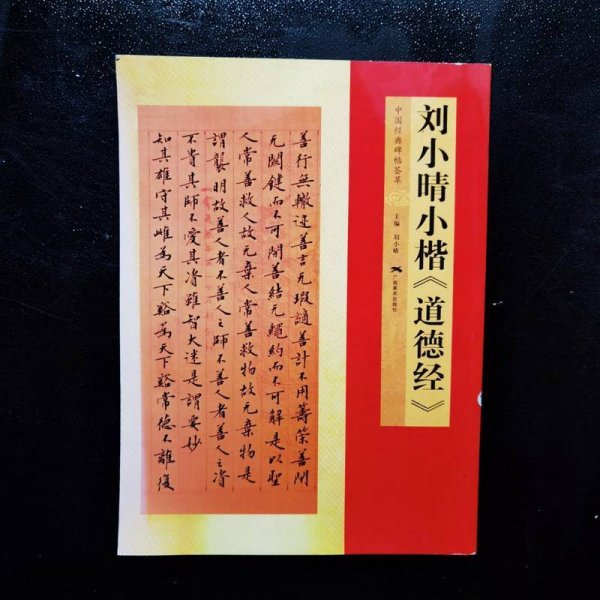 刘小晴小楷《道德经》
中国经典碑帖荟萃
主编 刘小晴
广西美术出版社
善行無轍迹善言无瑕謫善計不用籌策善閉
无關鍵而不可開善結无繩約而不可解是以聖
人常善救人故无棄人常善救物故无棄物是
謂襲明故善人者不善人之師不善人者善人之資
不貴其師不愛其資雖智大迷是謂要妙
知其雄守其雌為天下谿為天下谿常德不離復